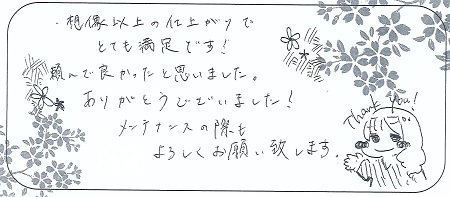 ・想像以上の仕上がりで
とても満足です!
頼んで良かったと思いました。
ありがとうございました!
メンテナンスの際も
よろしくお願い致します。
Thank you!